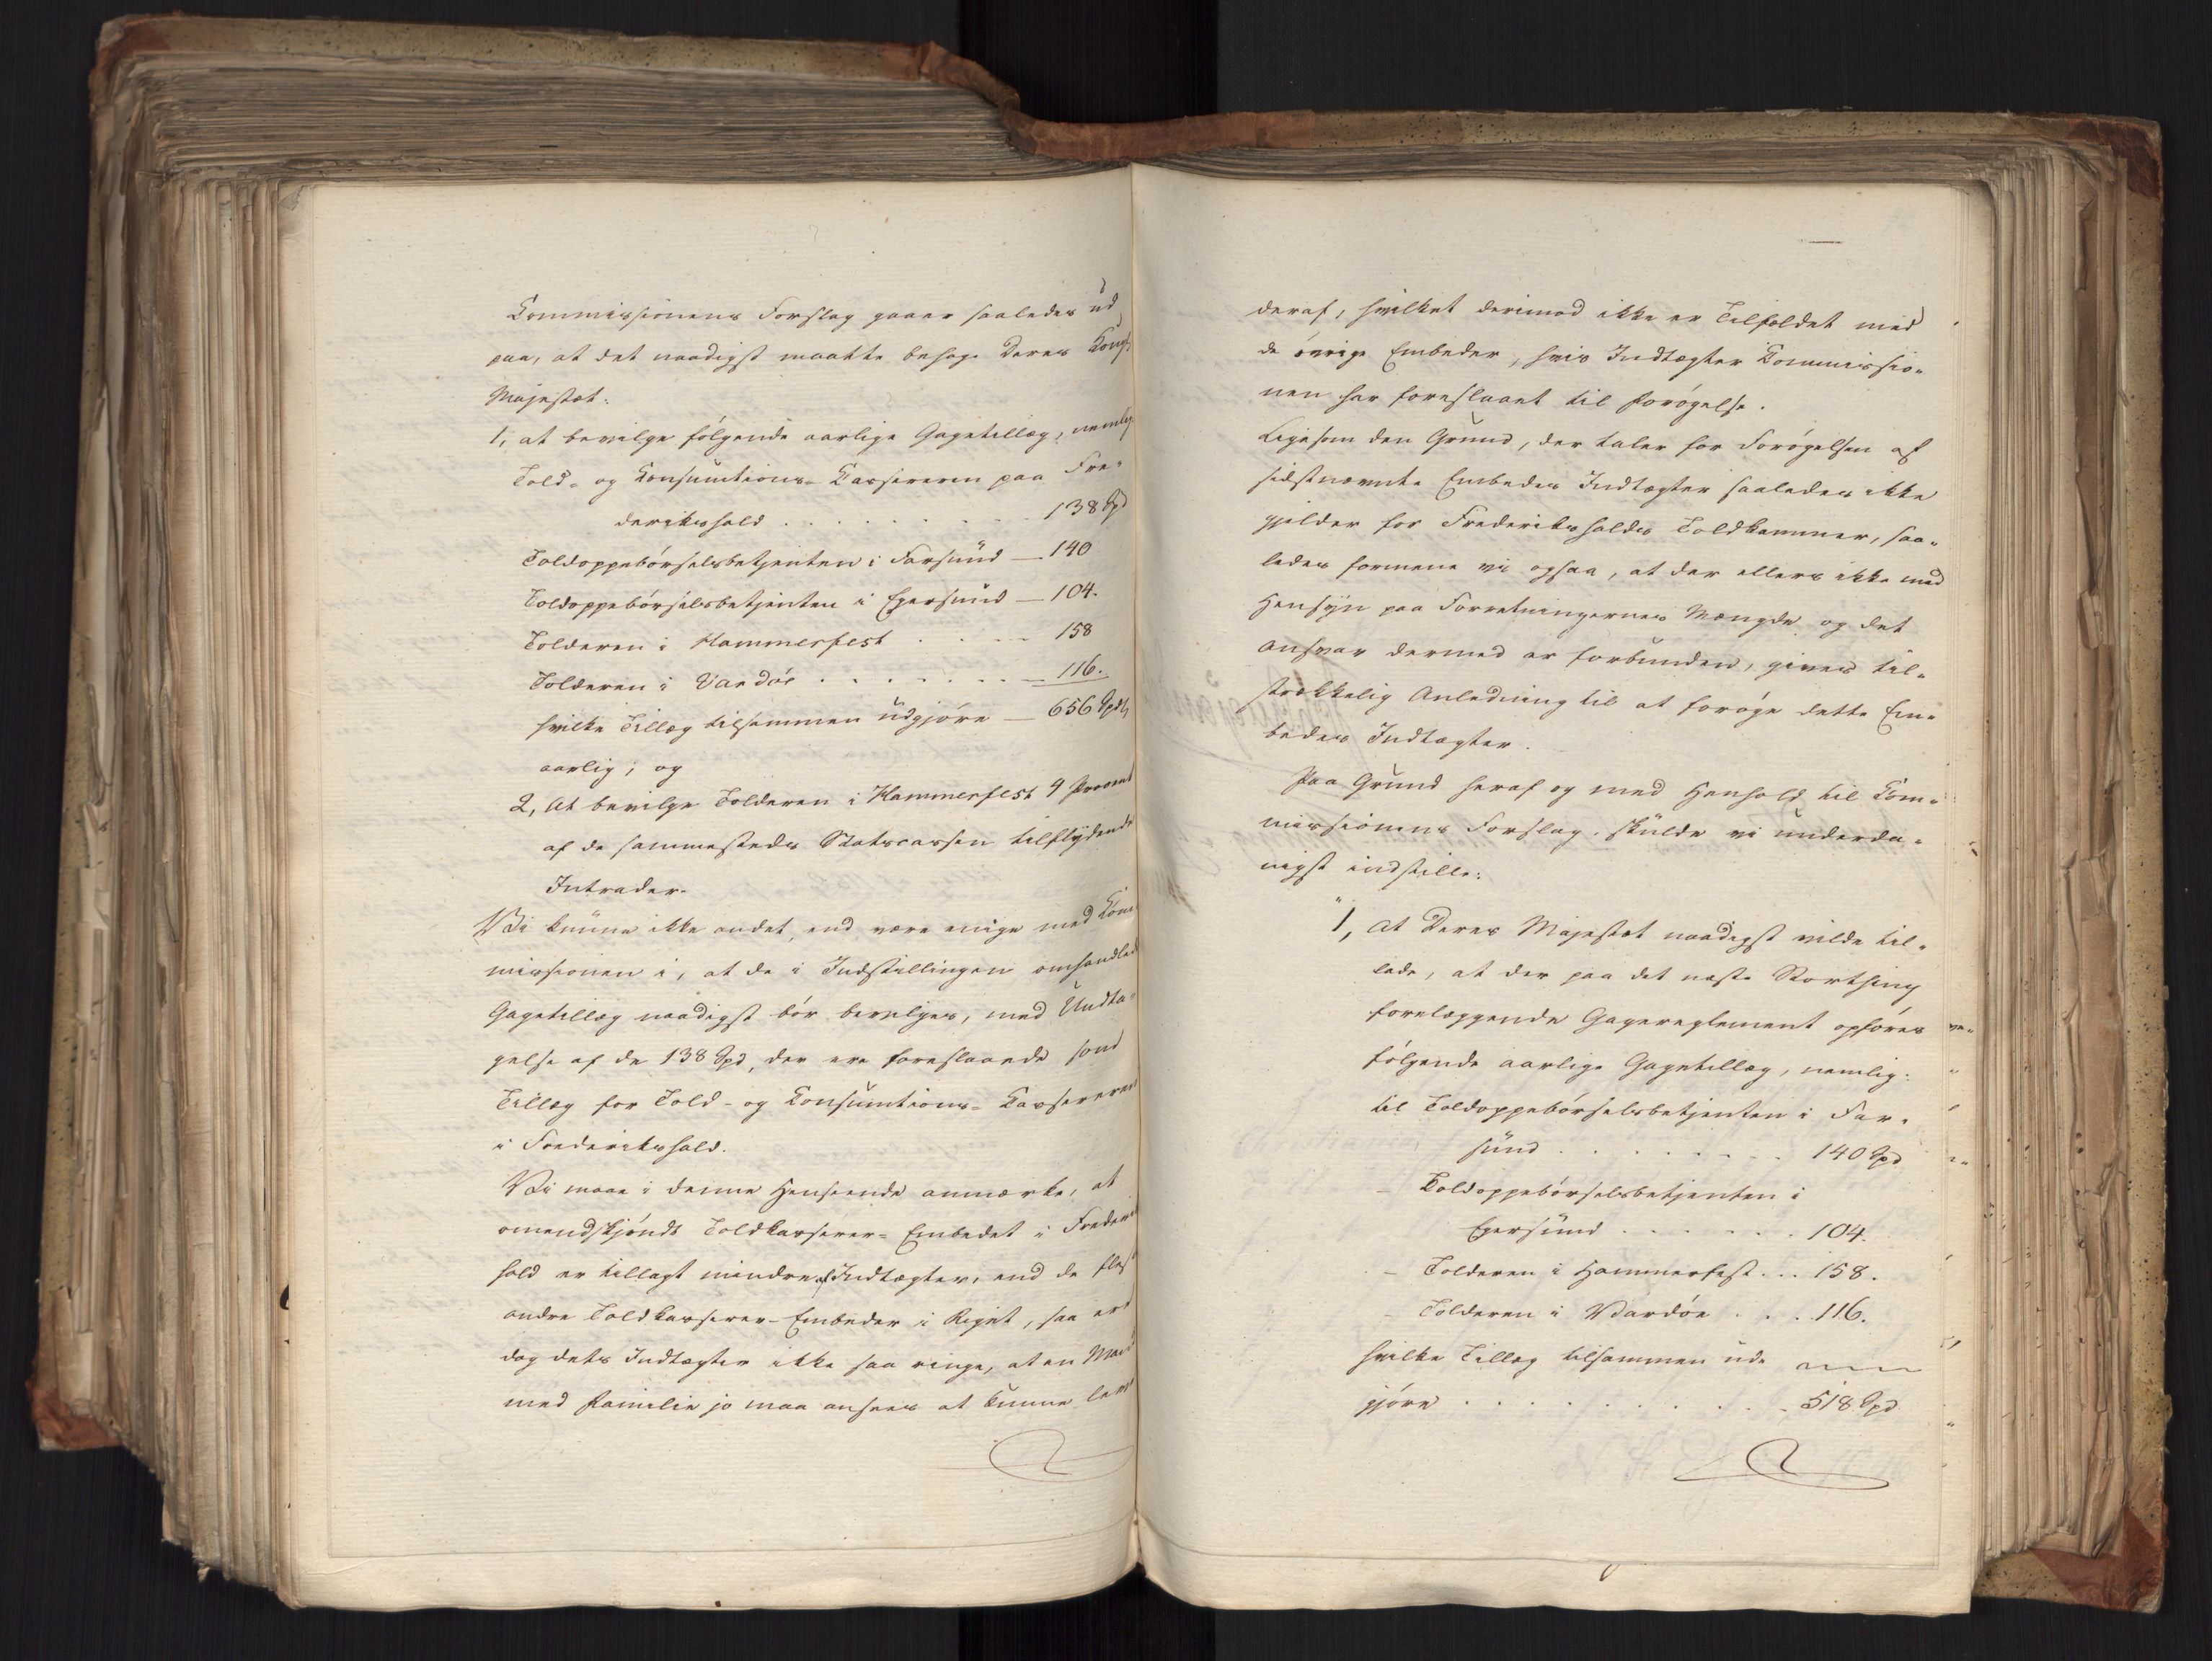 Commissionens Forslag gaaer saaledes ud
paa, at det naadigst maatte behage Deres Kongl.
Majestæt:
1, at bevilge følgende aarlige Gagetillæg, nemlig
Told- og Consumtions-Kassereren paa Fre-
derikshald . . . . . . . . 138 Spd
Toldoppebørselsbetjenten i Farsund — 140
Toldoppebørselsbetjenten i Egersund — 104.
Tolderen i Hammerfest . . . . 158
Tolderen i Vardöe . . . . . . . 116.
hvilke Tillæg tilsammen udgjøre — 656 Spd
aarlig; og
2, At bevilge Tolderen i Hammerfest 4 Procent
af de sammesteds Statscassen tilflydende
Intrader.
Vi kunne ikke andet, end være enige med Com-
missionen i, at de i Indstillingen omhandlede
Gagetillæg naadigst bør bevilges, med Undta-
gelse af de 138 Spd, der ere foreslaaede som
Tillæg for Told- og Consumtions-Kassereren
i Frederikshald.
Vi maae i denne Henseende anmærke, at
omendskjøndt Toldkasserer-Embedet i Frederiks
hald er tillagt mindre af Indtægter, end de fleste
andre Toldkasserer-Embeder i Riget, saa ere
dog dets Indtægter ikke saa ringe, at en Mand
med Familie jo maa ansees at kunne leve
deraf, hvilket derimod ikke er Tilfældet med
de øvrige Embeder, hvis Indtægter Commissio-
nen har foreslaaet til Forøgelse.
Ligesom den Grund, der taler for Forøgelsen af
sidstnævnte Embeders Indtægter saaledes ikke
gjelder for Frederikshalds Toldkammer, saa-
ledes formene vi ogsaa, at der ellers ikke med
Hensyn paa Forretningernes Mængde og det
Ansvar dermed er forbunden, gives til-
strækkelig Anledning til at forøge dette Em-
bedes Indtægter.
Paa Grund heraf og med Henhold til Com-
missionens Forslag, skulde vi underda-
nigst indstille:
"1, At Deres Majestæt naadigst vilde til-
lade, at der paa det næste Storthing
forelæggende Gagereglement opføres
følgende aarlige Gagetillæg, nemlig:
til Toldoppebørselsbetjenten i Far-
sund . . . . . . . . 140 Spd
– Toldoppebørselsbetjenten i
Egersund . . . . . . . 104.
– Tolderen i Hammerfest . . . 158.
– Tolderen i Vardöe . . . . 116.
hvilke Tillæg tilsammen ud-
gjøre . . . . . . . . . . . 518 Spd